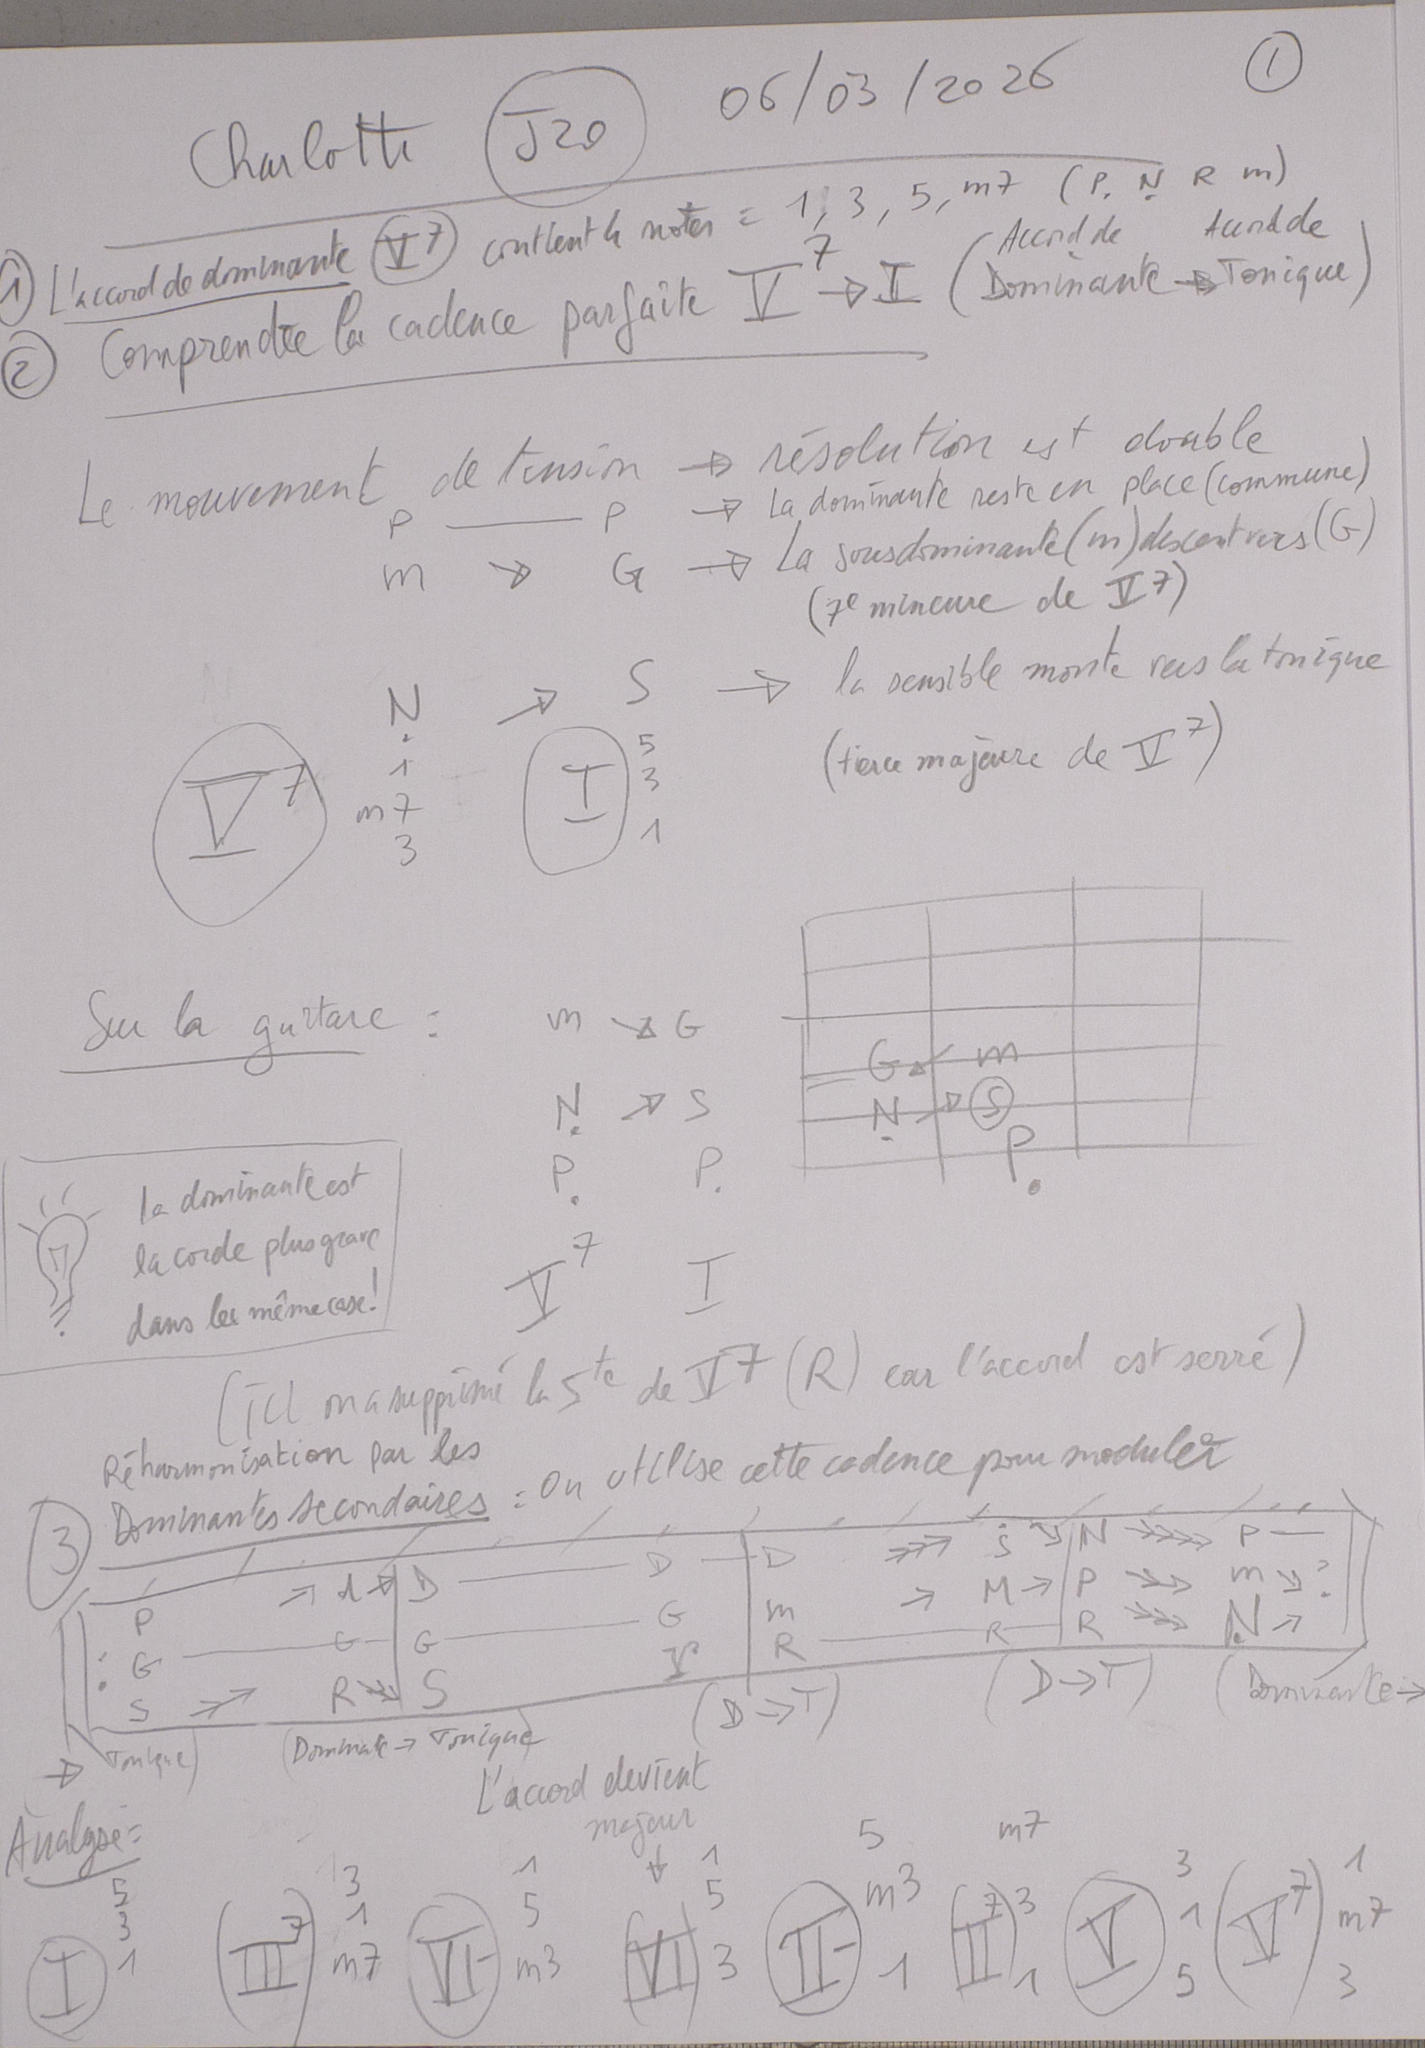 Charlotte J20 06/03/2026 ①
① L'accord de dominante V7 contient les notes = 1, 3, 5, m7 (P. Ṇ R m)
② Comprendre la cadence parfaite V7 → I (Accord de Dominante → Accord de Tonique)
Le mouvement de tension → résolution est double
P — P → La dominante reste en place (commune)
m ↘ G → La sousdominante (m) descent vers (G)
(7e mineure de V7)
Ṇ ↗ S → la sensible monte vers la tonique
V7 1 m7 3 I 5 3 1 (tierce majeure de V7)
Sur la guitare :
m ↘ G
Ṇ ↗ S
P. P.
V7 I
G ↙ m
Ṇ ↗ S
P.
la dominante est
la corde plus grave
dans la même case!
(Ici on a supprimé la 5te de V7 (R) car l'accord est serré)
③ Réharmonisation par les
Dominantes secondaires = on utilise cette cadence pour moduler
P → → D — D — D →→→ Ṡ ↘ N →→→→ P —
: G — G — G — G m → M → P →→→ m ↘ ?
S →→ R →→ S R — R — R →→→ Ṇ ↗
→ (Tonique) (Dominante → Tonique) (D → T) (D → T) (Dominante →
L'accord devient
majeur
↓
Analyse =
I 5 3 1
(III7) 3 1 m7
VI- 1 5 m3
(VI) 1 5 3
II- 5 m3 1
(II7) m7 3 1
V 3 1 5
(V7) 1 m7 3